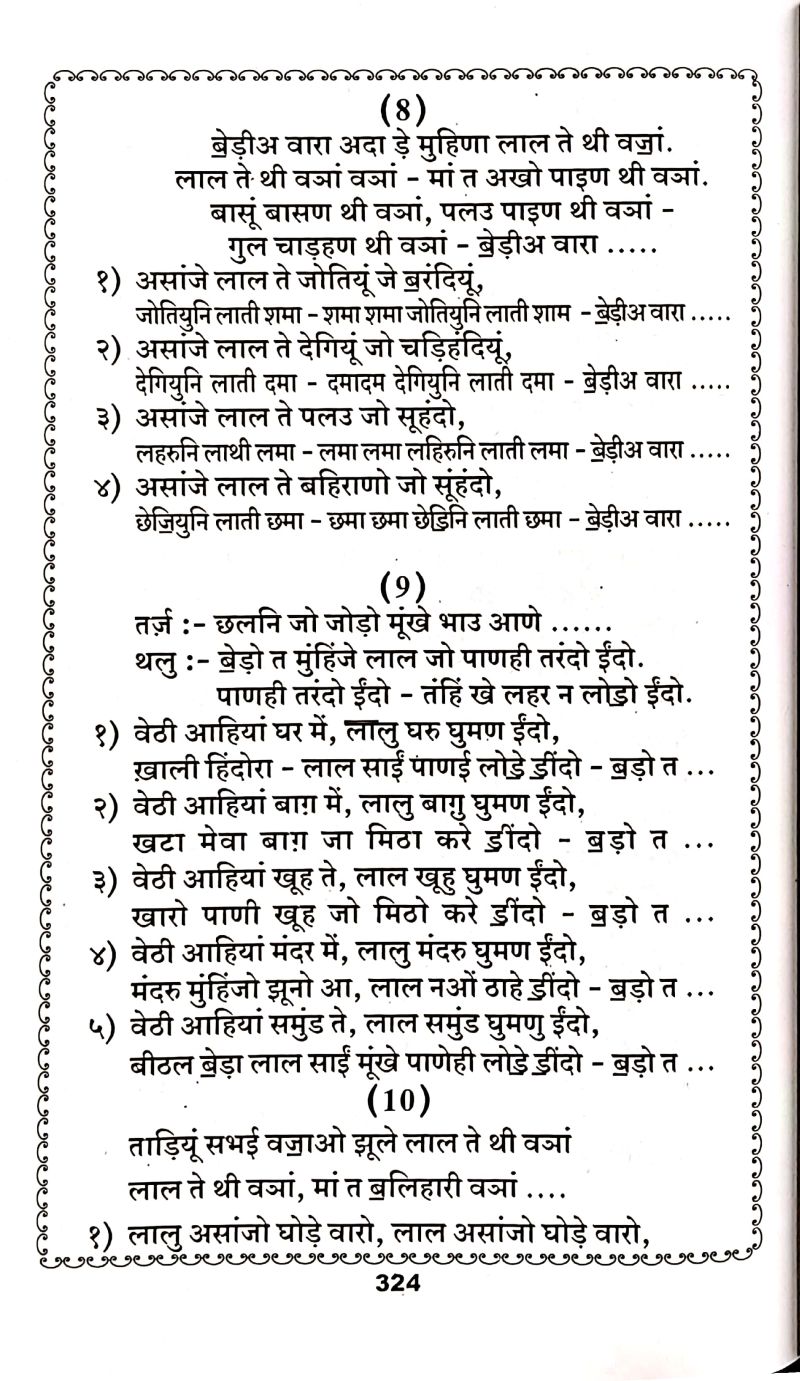 (8)
बे॒ड़ीअ वारा अदा ड़े मुहिणा लाल ते थी वञां.
लाल ते थी वञां वञां - मां त अखो पाइण थी वञां.
बासूं बासण थी वञां, पलउ पाइण थी वञां -
गुल चाड़हण थी वञां - बे॒ड़ीअ वारा .....
१) असांजे लाल ते जोतियूं जे ब॒रंदियूं,
जोतियुनि लाती शमा - शमा शमा जोतियुनि लाती शाम - बे॒ड़ीअ वारा .....
२) असांजे लाल ते देगियूं जो चड़िहंदियूं,
देगियुनि लाती दमा - दमादम देगियुनि लाती दमा - बे॒ड़ीअ वारा .....
३) असांजे लाल ते पलउ जो सूहंदो,
लहरुनि लाथी लमा - लमा लमा लहिरुनि लाती लमा - बे॒ड़ीअ वारा .....
४) असांजे लाल ते बहिराणो जो सूंहंदो,
छेजि॒युनि लाती छमा - छमा छमा छेडि॒नि लाती छमा - बे॒ड़ीअ वारा .....
(9)
तर्ज़ :- छलनि जो जोड़ो मूंखे भाउ आणे ......
थलु :- बे॒ड़ो त मुंहिंजे लाल जो पाणही तरंदो ईंदो.
पाणही तरंदो ईंदो - तंहिं खे लहर न लोडो॒ ईंदो.
१) वेठी आहियां घर में, लालु घरु घुमण ईंदो,
ख़ाली हिंदोरा - लाल साईं पाणई लोडे॒ डीं॒दो - ब॒ड़ो त ...
२) वेठी आहियां बाग़ में, लालु बागु़ घुमण ईंदो,
खटा मेवा बाग़ जा मिठा करे डीं॒दो - ब॒ड़ो त ...
३) वेठी आहियां खूह ते, लाल खूहु घुमण ईंदो,
खारो पाणी खूह जो मिठो करे डीं॒दो - ब॒ड़ो त ...
४) वेठी आहियां मंदर में, लालु मंदरु घुमण ईंदो,
मंदरु मुंहिंजो झूनो आ, लाल नओं ठाहे डीं॒दो - ब॒ड़ो त ...
५) वेठी आहियां समुंड ते, लाल समुंड घुमणु ईंदो,
बीठल बे॒ड़ा लाल साईं मूंखे पाणेही लोडे॒ डीं॒दो - ब॒ड़ो त ...
(10)
ताड़ियूं सभई वजा॒ओ झूले लाल ते थी वञां
लाल ते थी वञां, मां त ब॒लिहारी वञां ....
१) लालु असांजो घोड़े वारो, लाल असांजो घोड़े वारो,
324